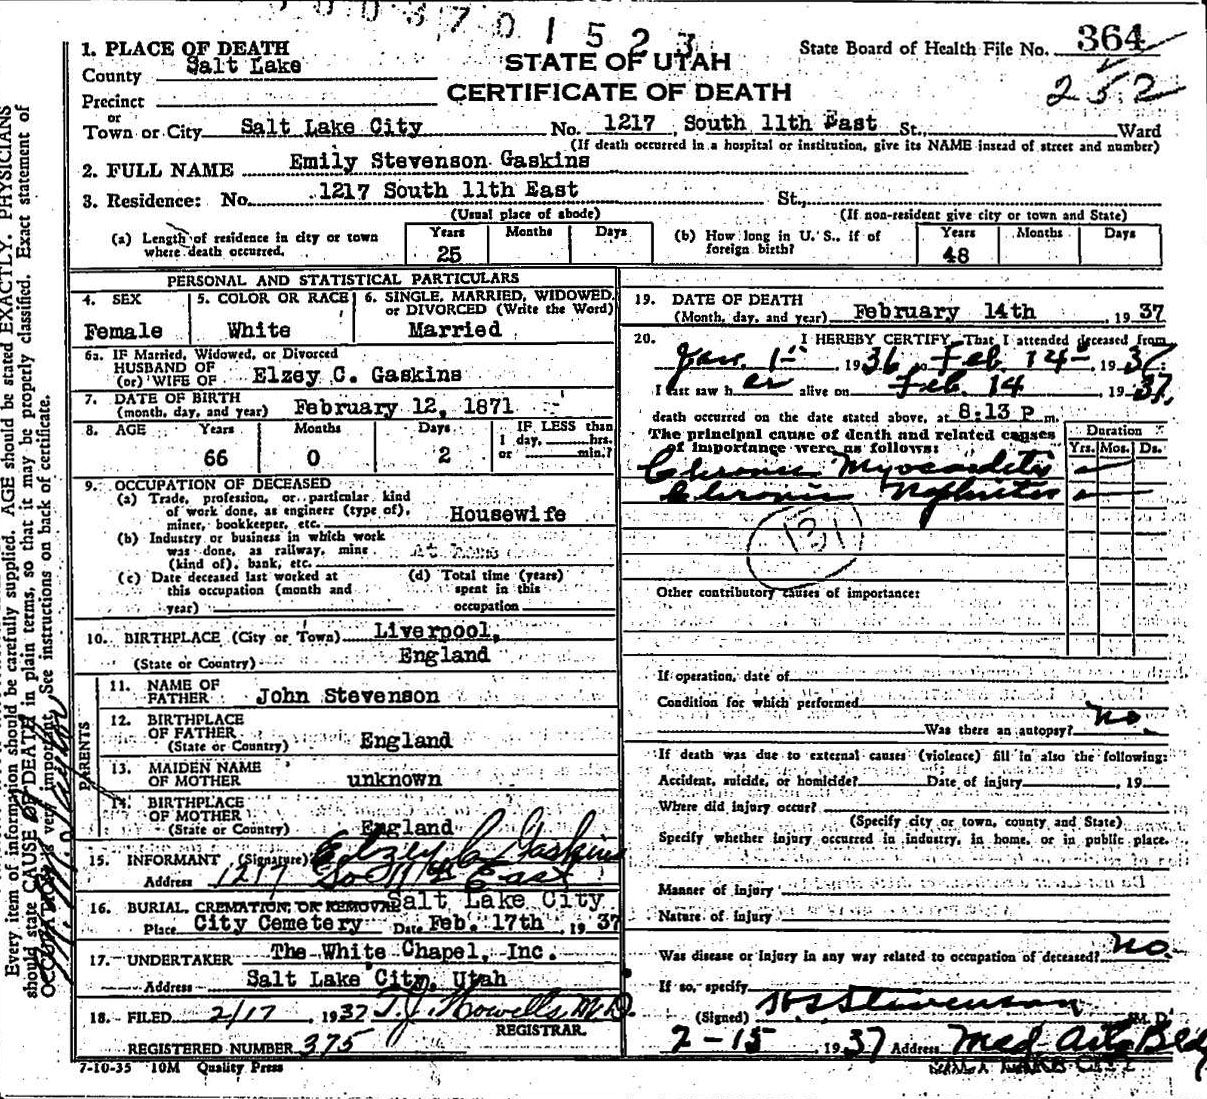 0 0 3 7 0 1 5 2 3
1. PLACE OF DEATH
County Salt Lake
STATE OF UTAH
CERTIFICATE OF DEATH
State Board of Health File No. 364
252
Precinct
or
Town or City Salt Lake City No. 1217 South 11th East St., Ward
(If death occurred in a hospital or institution, give its NAME instead of street and number)
2. FULL NAME Emily Stevenson Gaskins
3. Residence: No. 1217 South 11th East St.,
(Usual place of abode) (If non-resident give city or town and State)
(a) Length of residence in city or town where death occurred. Years 25 Months Days
(b) How long in U. S., if of foreign birth? Years 48 Months Days
PERSONAL AND STATISTICAL PARTICULARS
4. SEX Female
5. COLOR OR RACE White
6. SINGLE, MARRIED, WIDOWED, or DIVORCED (Write the Word) Married
6a. IF Married, Widowed, or Divorced
HUSBAND OF
(or) WIFE OF Elzey C. Gaskins
7. DATE OF BIRTH
(month, day, and year) February 12, 1871
8. AGE Years 66 Months 0 Days 2 IF LESS than 1 day, hrs. or min.?
9. OCCUPATION OF DECEASED
(a) Trade, profession, or particular kind
of work done, as engineer (type of),
miner, bookkeeper, etc. Housewife
(b) Industry or business in which work
was done, as railway, mine
(kind of), bank, etc. At home
(c) Date deceased last worked at
this occupation (month and
year)
(d) Total time (years)
spent in this
occupation
10. BIRTHPLACE (City or Town) Liverpool,
(State or Country) England
PARENTS
11. NAME OF
FATHER John Stevenson
12. BIRTHPLACE
OF FATHER
(State or Country) England
13. MAIDEN NAME
OF MOTHER unknown
14. BIRTHPLACE
OF MOTHER
(State or Country) England
15. INFORMANT (Signature) Elzey C Gaskins
Address 1217 So 11th East
16. BURIAL, CREMATION, OR REMOVAL Salt Lake City
Place City Cemetery Date Feb. 17th, 1937
17. UNDERTAKER The White Chapel, Inc.
Address Salt Lake City, Utah
18. FILED 2/17 1937 T. J. Howells, M.D.
REGISTRAR.
REGISTERED NUMBER 375
7-10-35 10M Quality Press
19. DATE OF DEATH
(Month, day, and year) February 14th 1937
20. I HEREBY CERTIFY, That I attended deceased from
Jan. 1st 1936 to Feb 14th 1937.
I last saw her alive on Feb. 14 1937,
death occurred on the date stated above, at 8:13 P m.
The principal cause of death and related causes
of importance were as follows:
Duration
Yrs. Mos. Ds.
Chronic Myocarditis
Chronic Nephritis
131
Other contributory causes of importance:
If operation, date of
Condition for which performed
Was there an autopsy? no.
If death was due to external causes (violence) fill in also the following:
Accident, suicide, or homicide? Date of injury , 19
Where did injury occur?
(Specify city or town, county and State)
Specify whether injury occurred in industry, in home, or in public place.
Manner of injury
Nature of injury
Was disease or injury in any way related to occupation of deceased? no.
If so, specify
(Signed) Stevenson M. D.
2-15 1937 Address Med Arts Bldg
SALT LAKE CITY
Every item of information should be carefully supplied. AGE should be stated EXACTLY. PHYSICIANS
should state CAUSE OF DEATH in plain terms, so that it may be properly classified. Exact statement of
OCCUPATION is very important. See instructions on back of certificate.